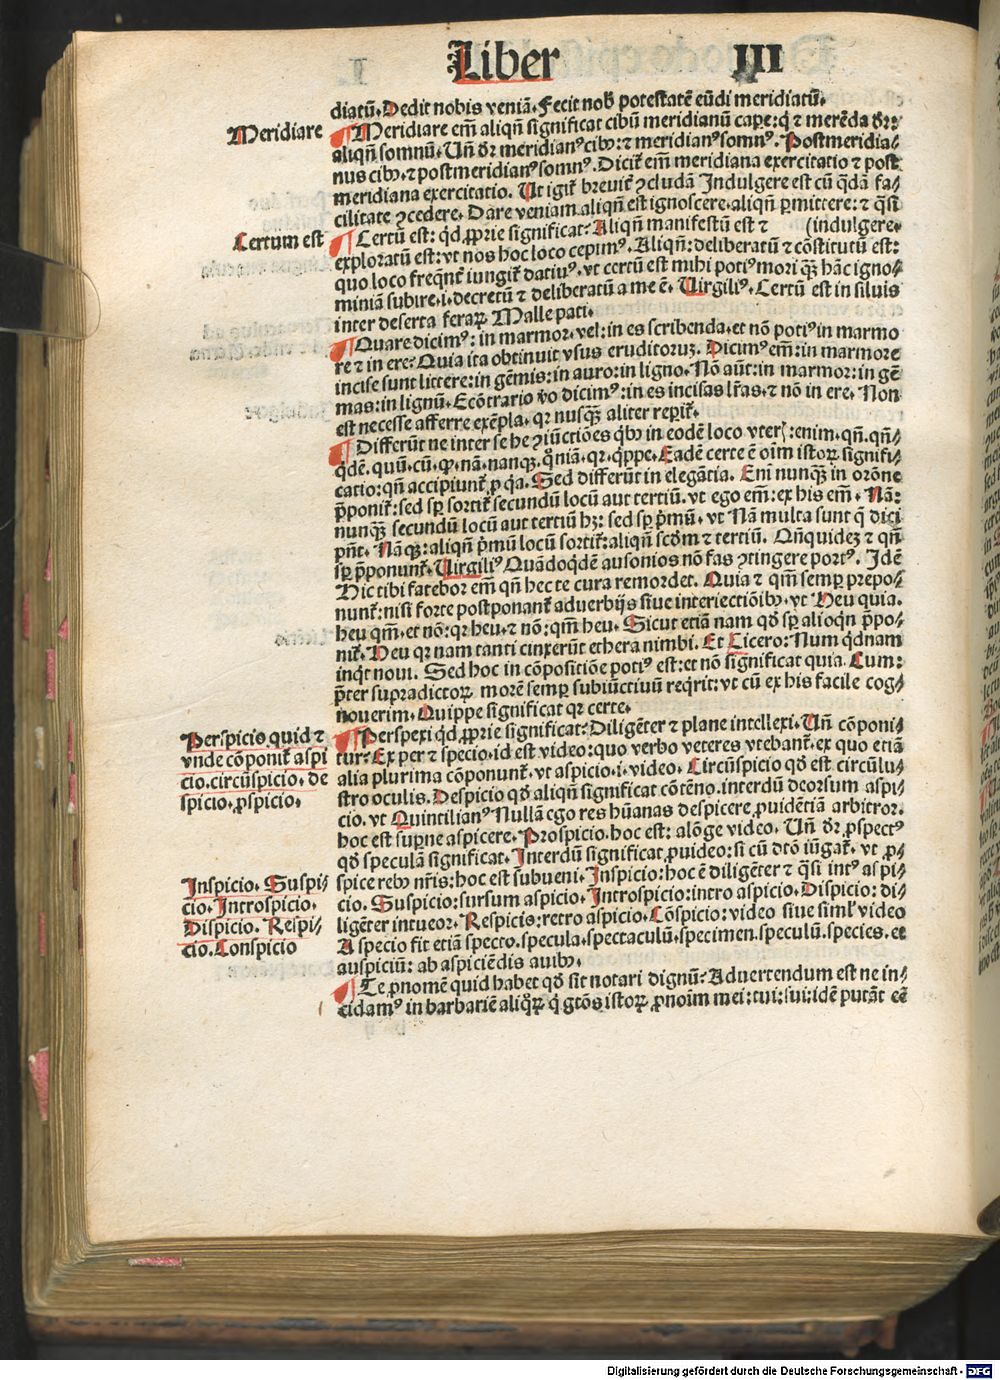 Liber III
diatū. Dedit nobis veniā. Fecit nob̄ potestatē eūdi meridiatū.
Meridiare
Meridiare em̄ aliqn̄ significat cibū meridianū cape: q̄ ⁊ merēda dr̄:
aliqn̄ somnū. Un̄ dr̄ meridianꝰ cibꝰ: ⁊ meridianꝰ somnꝰ. Postmeridia-
nus cibꝰ, ⁊ postmeridianꝰ somnꝰ. Dicit̄ em̄ meridiana exercitatio ⁊ post
meridiana exercitatio. Ut igit̄ breuit̄ ꝯcludā Indulgere est cū q̄dā fa-
cilitate ꝯcedere. Dare veniam aliqn̄ est ignoscere. aliqn̄ ꝑmittere: ⁊ q̄si
(indulgere.
Certum est
Certū est: qd̄ ꝓprie significat? Aliqn̄ manifestū est ⁊
exploratū est: vt nos hoc loco cepimꝰ. Aliqn̄: deliberatū ⁊ cōstitutū est:
quo loco freq̄nt̄ iungit̄ datiuꝰ. vt certū est mihi potiꝰ mori q̄ꝫ hāc igno-
miniā subire. i. decretū ⁊ deliberatū a me ē. Uirgiliꝰ. Certū est in siluis
inter deserta feraꝝ Malle pati.
Quare dicimꝰ: in marmor. vel: in es scribenda. et nō potiꝰ in marmo
re ⁊ in ere? Quia ita obtinuit vsus eruditoruꝫ. Dicimꝰ em̄: in marmore
incise sunt littere: in gēmis: in auro: in ligno. Nō aūt: in marmor: in gē
mas: in lignū. Ecōtrario v̄o dicimꝰ: in es incisas lr̄as. ⁊ nō in ere. Non
est necesse afferre exēpla. qr nusq̄ꝫ aliter reꝑit̄.
Differūt ne inter se he ꝯiūctiōes qb̄ꝰ in eodē loco vter⁊: enim. qn̄. qn̄-
q̄dē. quū. cū. ꝙ. nā. nanqꝫ. qm̄iā. qr. q̄ppe. Eadē certe ē oīm istoꝝ signifi-
catio: qn̄ accipiunt̄ ꝓ q̄a. Sed differūt in elegātia. Eni nunq̄ꝫ in orōne
p̄ponit̄: sed sꝑ sortit̄ secundū locū aut tertiū. vt ego em̄: ex his em̄. Nā:
nunq̄ꝫ secundū locū aut tertiū hꝫ: sed sꝑ p̄mū. vt Nā multa sunt q̄ dici
pn̄t. Nāqꝫ: aliqn̄ p̄mū locū sortit̄: aliqn̄ scd̄m ⁊ tertiū. Qn̄quideꝫ ⁊ qn̄
sꝑ p̄ponunt̄. Uirgiliꝰ Quādoqdē ausonios nō fas ꝯtingere portꝰ. Idē
Hic tibi fatebor em̄ qn̄ hec te cura remordet. Quia ⁊ qm̄ semꝑ prepo-
nunt̄: nisi forte postponant̄ aduerbijs siue interiectiōibꝰ. vt Heu quia.
heu qm̄. et nō: qr heu. ⁊ nō: qm̄ heu. Sicut etiā nam qd̄ sꝑ alioqn̄ p̄po-
nit̄. Heu qr nam tanti cinxerūt ethera nimbi. Et Cicero: Num q̄dnam
inq̄t noui. Sed hoc in cōpositiōe potiꝰ est: et nō significat quia. Cum:
p̄ter supradictoꝝ morē semꝑ subiūctiuū reqrit: vt cū ex his facile cog-
nouerim. Quippe significat qr certe.
Perspicio quid ⁊
vnde cōponit̄ aspi
cio. circūspicio. de
spicio. ꝓspicio.
Perspexi qd̄ ꝓprie significat? Diligēter ⁊ plane intellexi. Un̄ cōponi-
tur? Ex per ⁊ specio. id est video: quo verbo veteres vtebant̄. ex quo etiā
alia plurima cōponunt̄. vt aspicio. i. video. Circūspicio qd̄ est circūlu-
stro oculis. Despicio qd̄ aliqn̄ significat cōtēno. interdū deorsum aspi-
cio. vt Quintilianꝰ Nullā ego res hūanas despicere ꝓuidētiā arbitror.
hoc est suꝑne aspicere. Prospicio. hoc est: alōge video. Un̄ dr̄ ꝓspectꝰ
qd̄ speculā significat. Interdū significat ꝓuideo: si cū dt̄o iūgat̄. vt ꝓ-
Inspicio. Suspi-
cio. Introspicio.
Dispicio. Respi-
cio. Conspicio
spice rebꝰ nr̄is: hoc est subueni. Inspicio: hoc ē diligēter ⁊ q̄si intꝰ aspi-
cio. Suspicio: sursum aspicio. Introspicio: intro aspicio. Dispicio: di-
ligēter intueor. Respicis: retro aspicio. Cōspicio: video siue siml̄ video
A specio fit etiā specto. specula. spectaculū. specimen. speculū. species. et
auspiciū: ab aspiciēdis auibꝰ.
Te ꝓnomē quid habet qd̄ sit notari dignū? Aduertendum est ne in-
cidamꝰ in barbariē aliq̄ꝝ q̄ gt̄os istoꝝ ꝓnoim mei: tui: sui: idē putāt eē
Digitalisierung gefördert durch die Deutsche Forschungsgemeinschaft - DFG